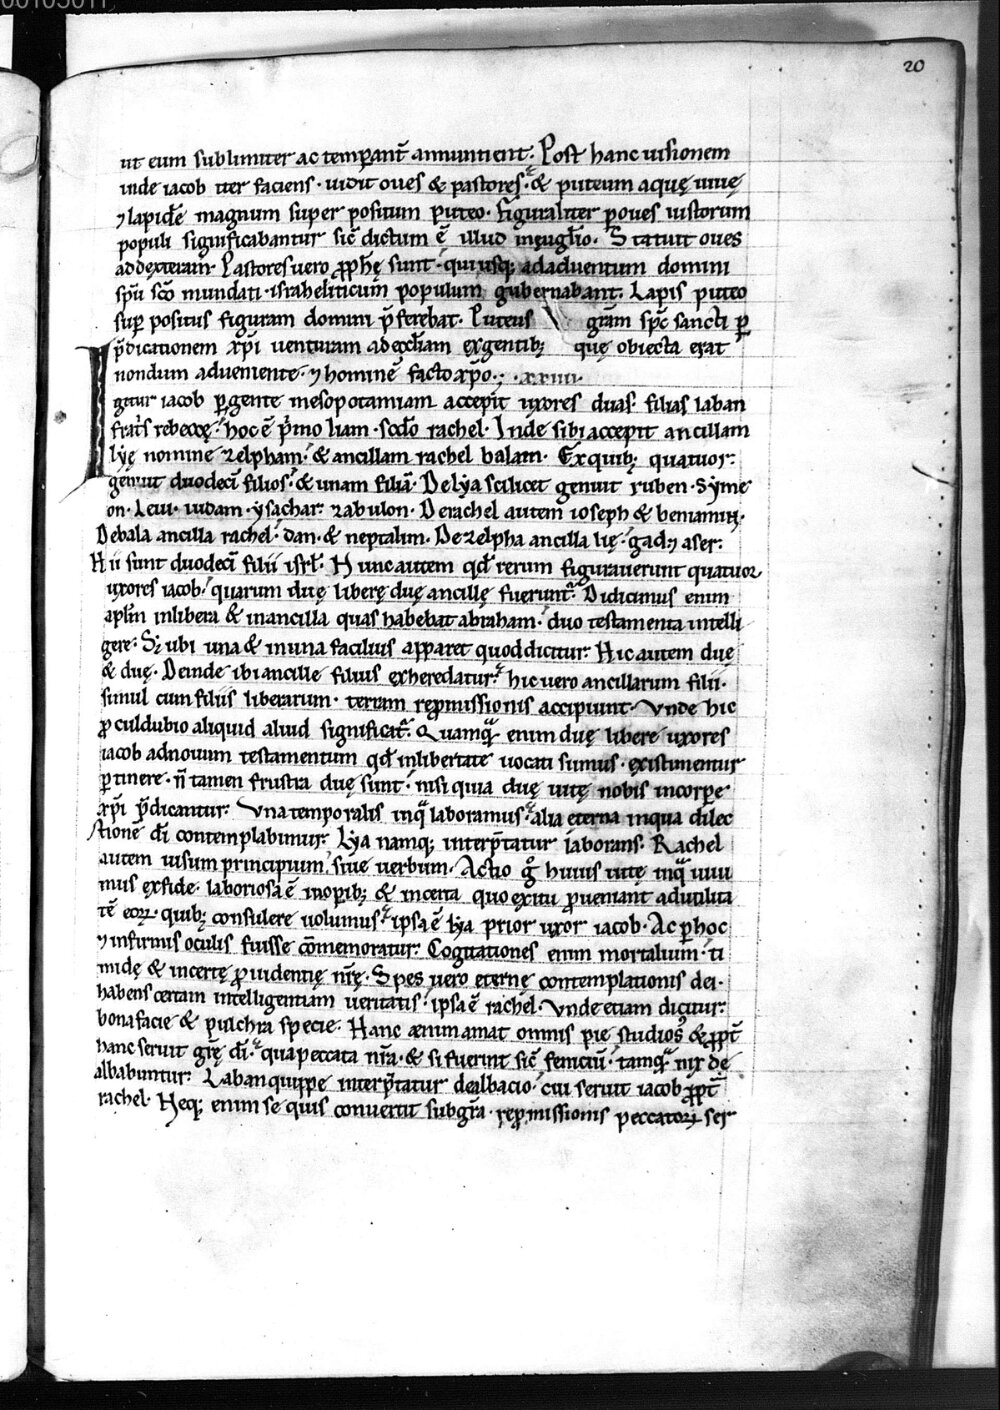 20
ut eum sublimiter ac temperant̄ annuntient. Post hanc uisionem
inde iacob iter faciens. uidit oues & pastores. & puteum aquę uiuę
⁊ lapidē magnum super positum puteo. Figuraliter ꝑ oues iustorum
populi significabantur sic̄ dictum ē illud in ęuḡlio. Statuit oues
ad dexteram. Pastores uero ꝓph̄ę sunt. qui usq; ad aduentum domini
sp̄u sc̄o mundati. israheliticum populum gubernabant. Lapis puteo
suꝑ positus figuram domini p̄ferebat. Puteus gr̄am sp̄c sancti ꝑ
p̄dicationem xp̄i uenturam ad eccl̄iam ex gentib; quę obiecta erat
nondum adueniente. ⁊ hominē facto xp̄o.; .xxiiii.
Igitur iacob ꝑgente mesopotamiam accepit uxores duas. filias laban
frat̄s rebeccę. hoc ē p̄mo liam. sc̄do rachel. Inde sibi accepit ancillam
lyę nomine zelpham. & ancillam rachel balam. Ex quib; quatuor.
genuit duodeci filios. & unam filiā. De lya scilicet genuit ruben. Syme
on. Leui. iudam. ysachar. zabulon. De rachel autem ioseph & beniamin.
De bala ancilla rachel. dan. & neptalim. De zelpha ancilla lię. gad. ⁊ aser.
Hii sunt duodeci filii isrl̄. Hunc autem qd̄ rerum figurauerunt quatuor
uxores iacob. quarum duę liberę duę ancillę fuerunt. Didicimus enim
apl̄m in libera & in ancilla quas habebat abraham. duo testamenta intelli
gere. Si ubi una & in una facilius apparet quod dicitur. Hic autem duę
& duę. Deinde ibi ancille filius exheredatur. hic uero ancillarum filii.
simul cum filiis liberarum. terram repromissionis accipiunt. Vnde hic
ꝓculdubio aliquid aliud significat. Quamq̄ enim duę libere uxores
iacob ad nouum testamentum qd̄ in libertate uocati sumus. existimentur
ꝑtinere. n̄ tamen frustra duę sunt. nisi quia duę uitę nobis in corꝑe
xp̄i p̄dicantur. Vna temporalis in q̄ laboramus. alia eterna in qua dilec
tionē dī contemplabimur. Lya namq; interp̄tatur laborans. Rachel
autem uisum principium. siue uerbum. Actio g̊ huius uitę in q̄ uiui
mus ex fide. laboriosa ē in oꝑib; & incerta quo exitu ꝓueniant ad utilita
tē eoꝝ quib; consulere uolumus. ipsa ē lya prior uxor iacob. Ac ꝑ hoc
⁊ infirmis oculis fuisse cōmemoratur. Cogitationes enim mortalium. ti
midę & incertę ꝓuidentię nr̄ę. Spes uero eternę contemplationis dei.
habens certam intelligentiam ueritatis. ipsa ē rachel. Vnde etiam dicitur.
bona facie & pulchra specie. Hanc ænim amat omnis pie studiosꝰ & ꝓpt̄
hanc seruit gr̄ę dī. qua peccata nr̄a. & si fuerint sic̄ feniciū. tamq̄ nix de
albabuntur. Laban quippe interp̄tatur dealbacio. cui seruit iacob ꝓpt̄
rachel. Neq; enim se quis conuertit sub gr̄a. repromissionis peccatoꝝ ser